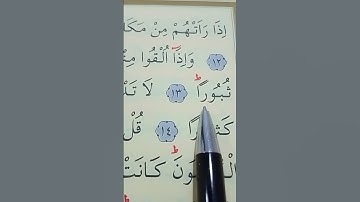 اِذَا رَاَتْهُمْ مِنْ مَكَا
﴿١٢﴾ وَاِذَٓا اُلْقُوا مِنْ
ثُبُورًا ﴿١٣﴾ لَا تَدْ
كَث۪يرًا ﴿١٤﴾ قُلْ
كَانَتْ